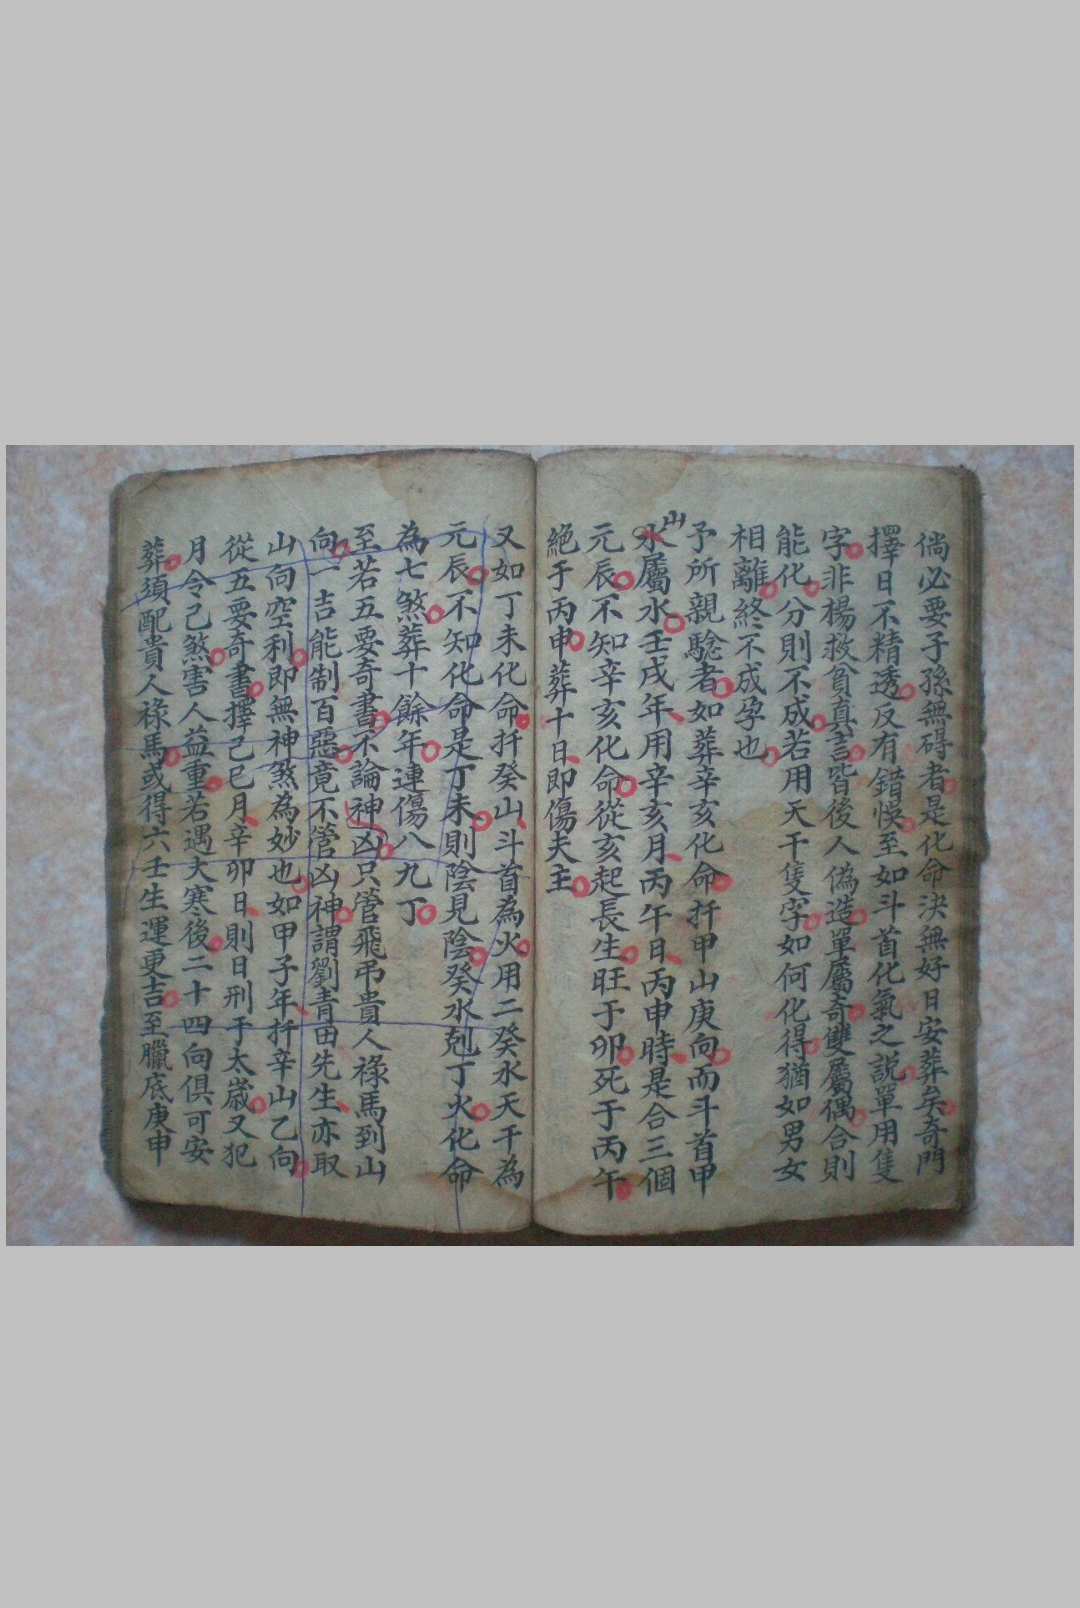 倘必要子孫無碍者是化命決無好日安葬矣奇門
擇日不精透反有錯悞至如斗首化氣之說單用隻
字非楊救貧真言皆後人偽造單屬奇雙屬偶合則
能化分則不成若用天干隻字如何化得猶如男女
相離終不成孕也
予所親騐者如葬辛亥化命扦甲山庚向而斗首甲
山屬水壬戌年用辛亥月丙午日丙申時是合三個
元辰不知辛亥化命從亥起長生旺于卯死于丙午
絕于丙申葬十日即傷夫主
又如丁未化命扦癸山斗首為火用二癸水天干為
元辰不知化命是丁未則陰見陰癸水剋丁火化命
為七煞葬十餘年連傷八九丁
至若五要奇書不論神凶只管飛吊貴人祿馬到山
向一吉能制百惡竟不管凶神謂劉青田先生亦取
山向空利即無神煞為妙也如甲子年扦辛山乙向
從五要奇書擇己巳月辛卯日則日刑于太歲又犯
月令己煞害人益重若遇大寒後二十四向俱可安
葬須配貴人祿馬或得六壬生運更吉至臘底庚申